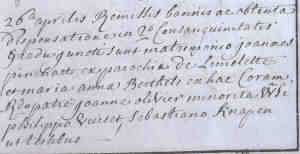 26 aprilis Remissis bannis ac obtenta
dispensatione in 2o Consanguinitatis
gradu juncti sunt matrimonio joannes
ex parochia de Limelette
et maria anna Berthels ex hac Coram
Rdo patre joanne olivier minorita
philippo Sebastiano Knapen
testibus